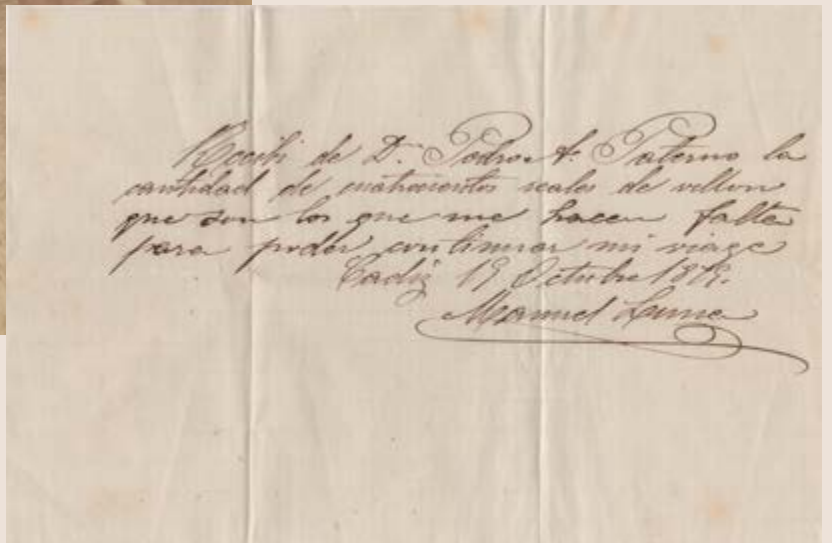 Recibi de Dn. Pedro A. Paterno la
cantidad de cuatrocientos reales de vellon
que son los que me hacen falta
para poder continuar mi viage
Cadiz 19 Octubre 1879.
Manuel Luna